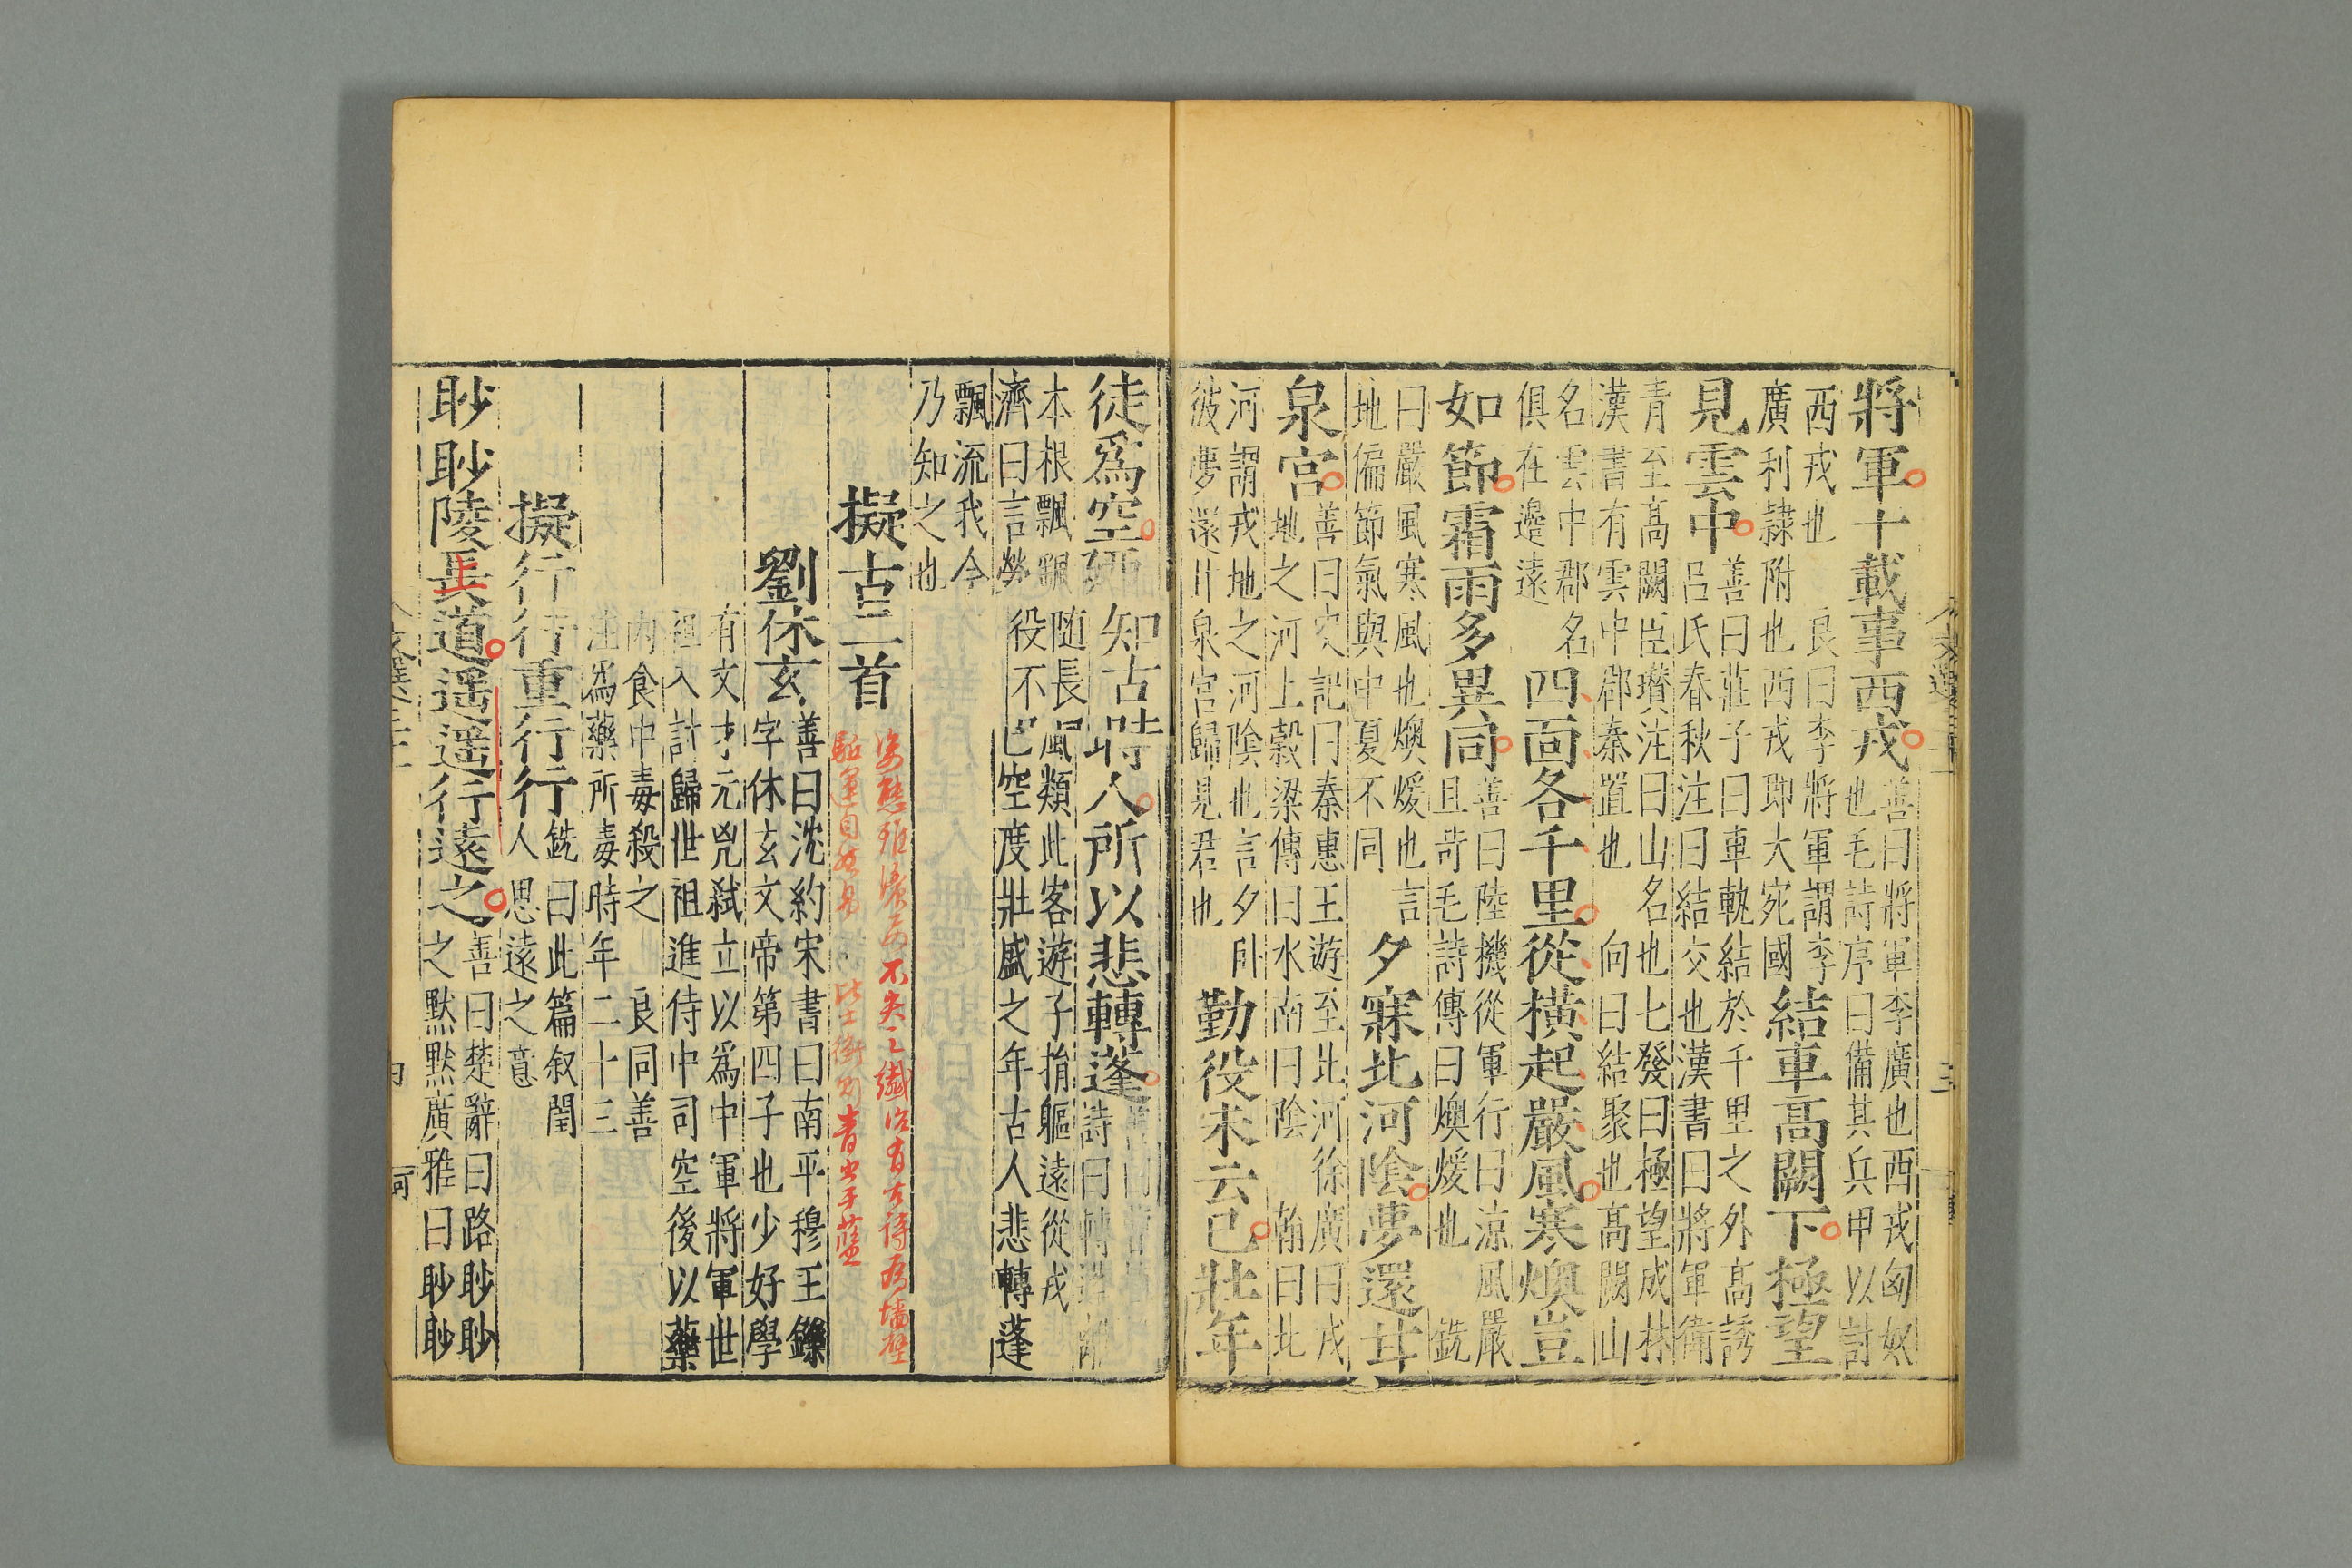 將軍十載事西戎善曰將軍李廣也西戎匈奴
也毛詩序曰備其兵甲以討
西戎也 良曰李將軍謂李
廣利隷附也西戎即大宛國結車高闕下極望
見雲中善曰莊子曰車軌結於千里之外高誘
呂氏春秋注曰結交也漢書曰將軍衛
青至高闕臣瓚注曰山名也七發曰極望成林
漢書有雲中郡秦置也 向曰結聚也高闕山
名雲中郡名
俱在邊遠四面各千里從橫起嚴風寒燠豈
如節霜雨多異同善曰陸機從軍行曰涼風嚴
且苛毛詩傳曰燠煖也 銑
曰嚴風寒風也燠煖也言
地偏節氣與中夏不同夕寐北河陰夢還甘
泉宮善曰史記曰秦惠王遊至北河徐廣曰戎
地之河上穀梁傳曰水南曰陰 翰曰北
河謂戎地之河陰也言夕卧
彼夢還甘泉宮歸見君也勤役未云已壯年
徒爲空廼知古時人所以悲轉蓬
詩曰轉蓬離
本根飄飄隨長風類此客游子捐軀遠從戎
濟曰言勞役不已空度壯盛之年古人悲轉蓬
飄流我今
乃知之也
擬古二首
不失
有古詩爲墻壁
青出于藍
劉休玄善曰沈約宋書曰南平穆王鑠
字休玄文帝第四子也少好學
有文才元兇弑立以爲中軍將軍世
祖入討歸世祖進侍中司空後以藥
內食中毒殺之 良同善
注爲藥所毒時年二十三
擬行行重行行銑曰此篇叙閨
人思遠之意
眇眇陵長道遥遥行遠之善曰楚辭曰路眇眇
之默默廣雅曰眇眇